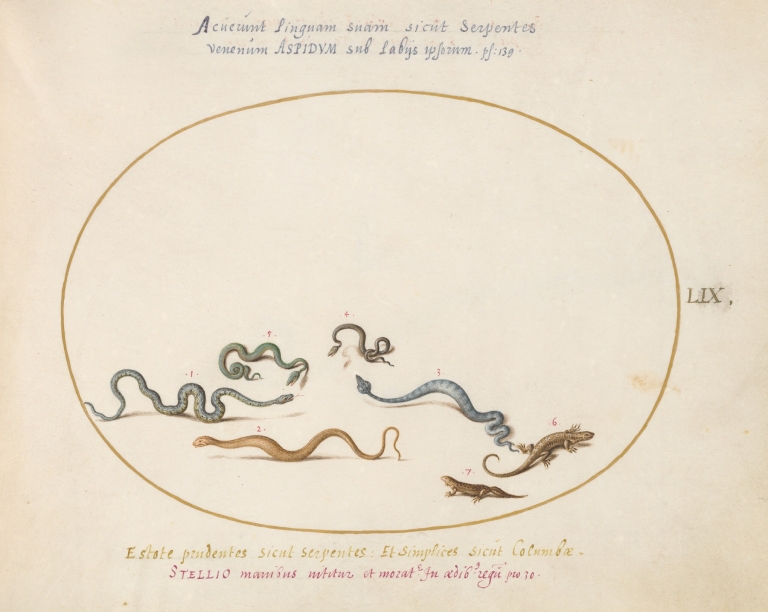 Acuerunt linguam suam sicut Serpentes
venenum ASPIDVM sub labijs ipsorum. ps: 139.
LIX,
4
5
1
3
2
6
7
Estote prudentes sicut serpentes: Et simplices sicut Columbæ.
STELLIO manibus nititur et morat᷒ In ædib᷒ regũ pro 30.